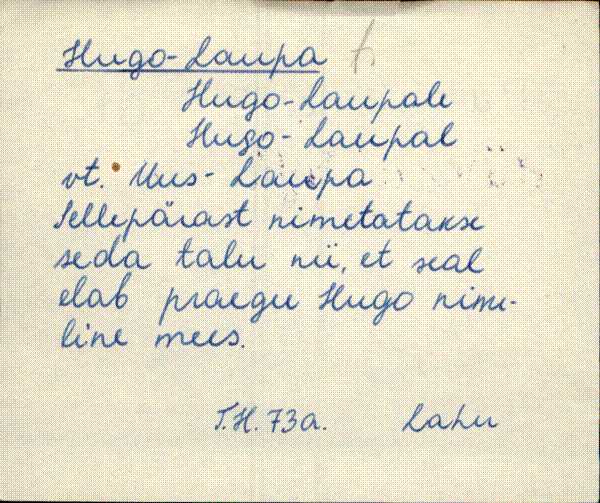 Hugo-Laupa t.
Hugo-Laupale
Hugo-Laupal
vt. Uus-Laupa
Sellepärast nimetatakse
seda talu nii, et seal
elab praegu Hugo nime-
line mees.
T.H. 73a. Lahu